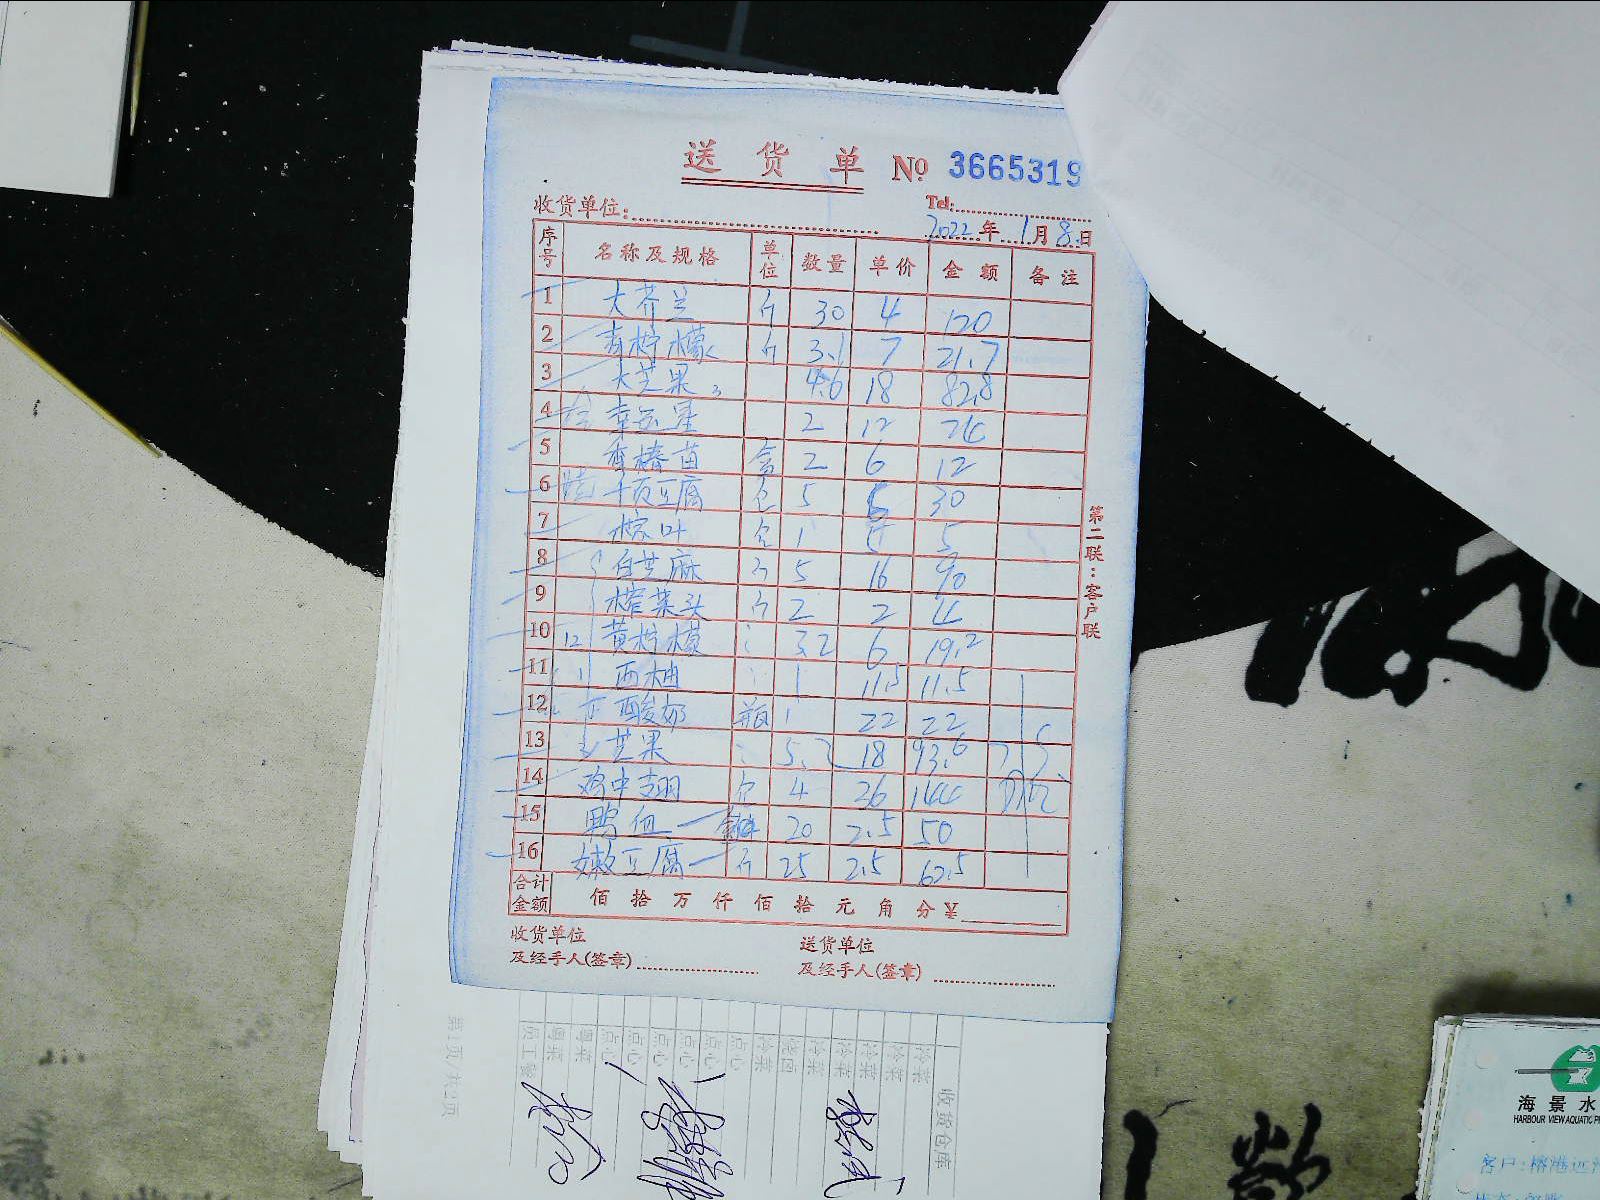 送货单 № 3665319
收货单位: Tel:
2022年1月8日
序号 名称及规格 单位 数量 单价 金额 备注
1 大芥兰 斤 30 4 120
2 青柠檬 斤 3.1 7 21.7
3 大芒果 4.6 18 82.8
4 幸运星 2 12 24
5 香椿苗 盒 2 6 12
6 千页豆腐 包 5 6 30
7 粽叶 包 1 5 5
8 白芝麻 斤 5 16 90
9 榨菜头 斤 2 2 4
10 黄柠檬 3.2 6 19.2
11 西柚 1 11.5 11.5
12 酸奶 瓶 1 22 22
13 芒果 5.2 18 93.6
14 鸡中翅 包 4 26 144
15 鸭血 20 2.5 50
16 嫩豆腐 斤 25 2.5 62.5
合计金额 佰 拾 万 仟 佰 拾 元 角 分 ¥
收货单位 送货单位
及经手人(签章) 及经手人(签章)
第二联:客户联
收货仓库
冷菜
冷菜
冷菜
冷菜
冷菜
烧囱
冷菜
点心
点心
点心
点心
点心
点心
粤菜
粤菜
员工餐
第1页/共2页
海景水
HARBOUR VIEW AQUATIC
客户:榕港远